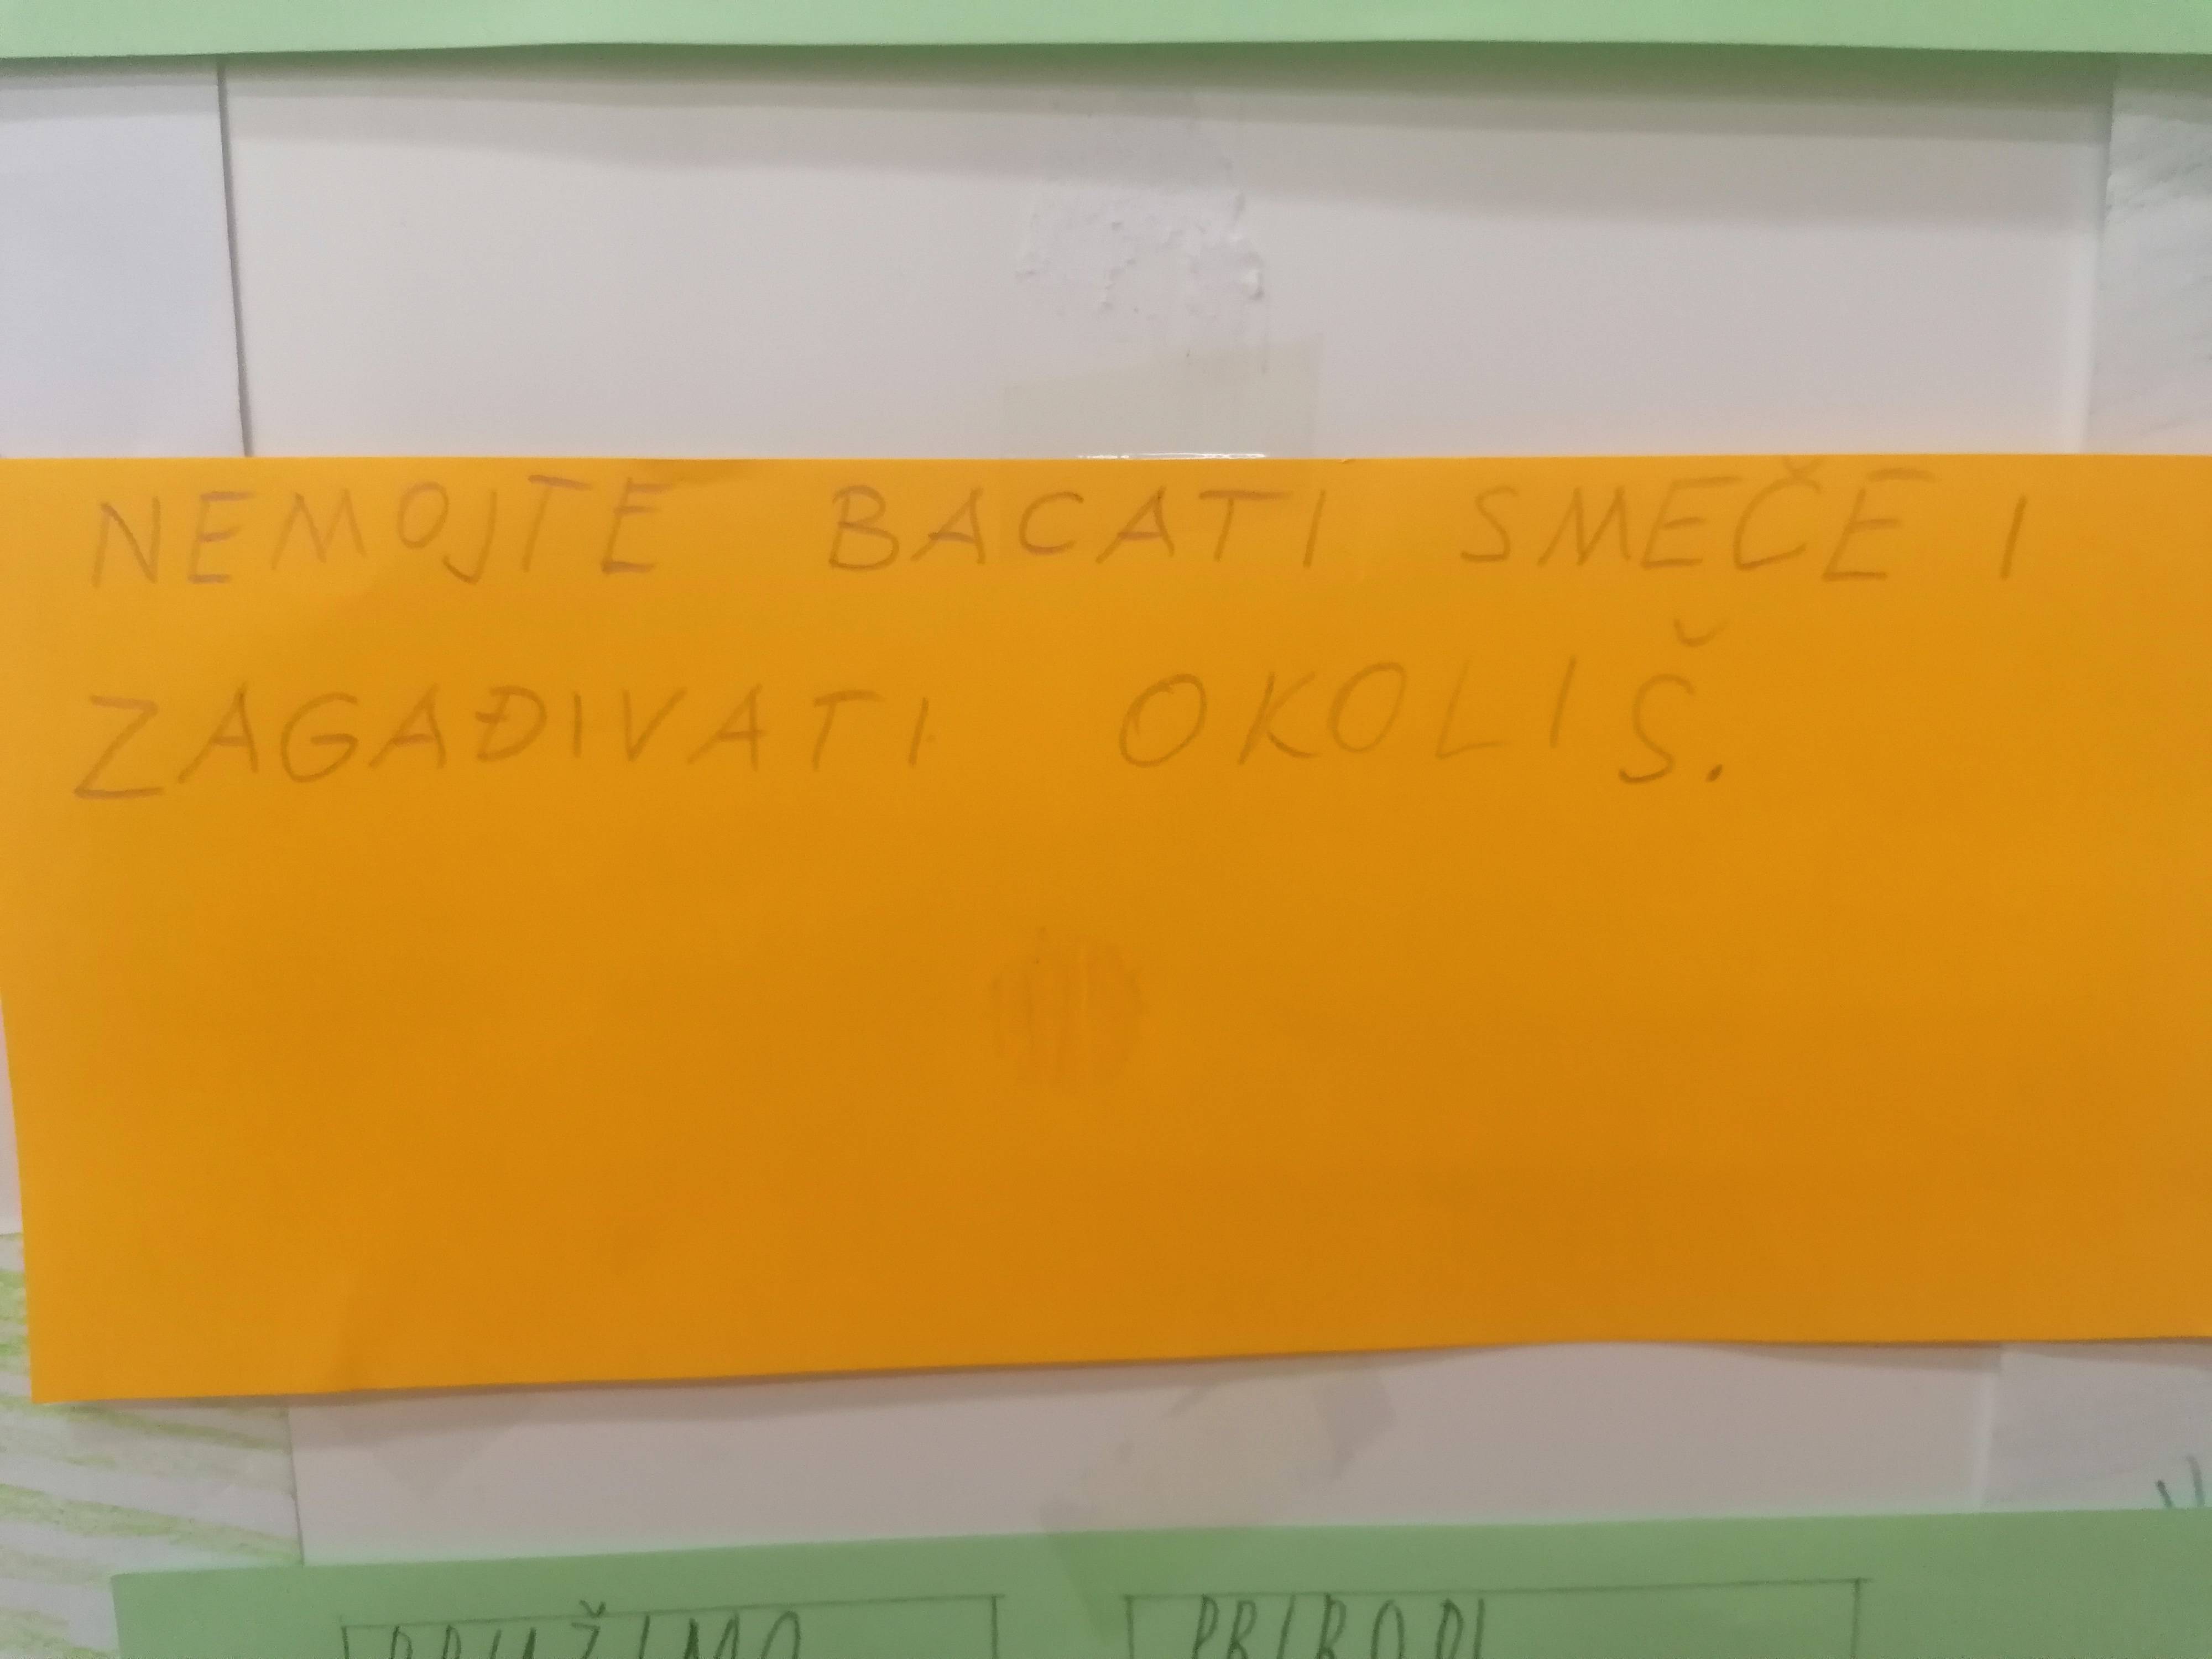 NEMOJTE BACATI SMEČE I
ZAGAĐIVATI OKOLIŠ.
PRIRODI